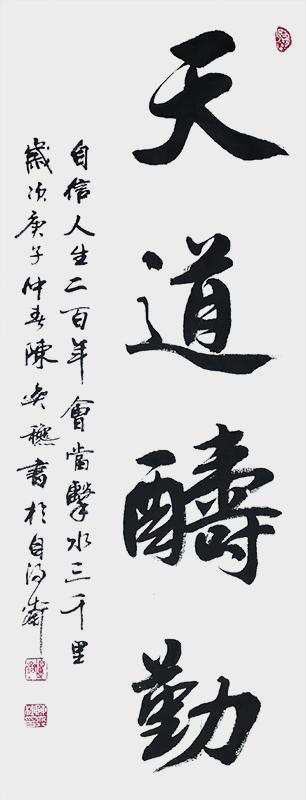 天道酬勤
自信人生二百年會當擊水三千里
歲次庚子仲春陳奕
書於自